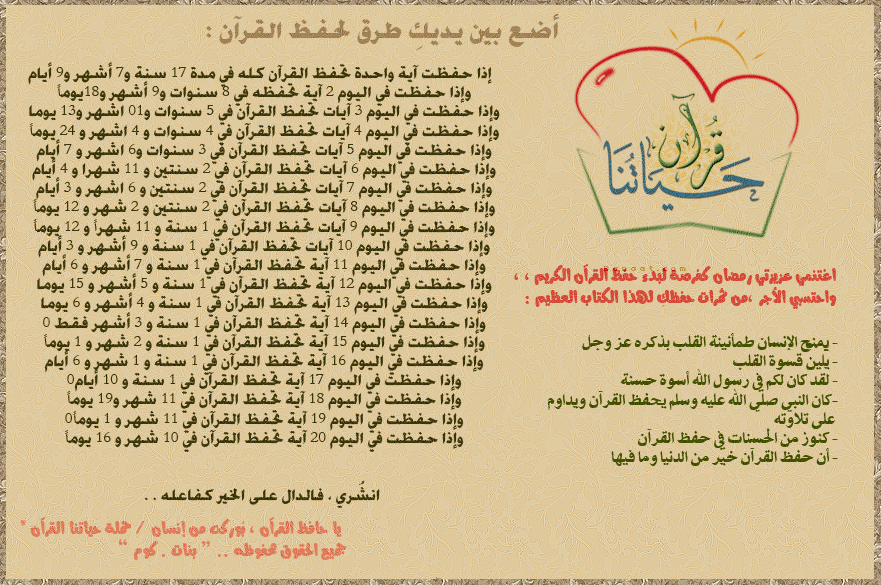 أضع بين يديكِ طرق لحفظ القرآن :
إذا حفظت آية واحدة تحفظ القرآن كله في مدة 17 سنة و7 أشهر و9 أيام
وإذا حفظت في اليوم 2 آية تحفظه في 8 سنوات و9 أشهر و18يوماً
وإذا حفظت في اليوم 3 آيات تحفظ القرآن في 5 سنوات و01 اشهر و13 يوما
وإذا حفظت في اليوم 4 آيات تحفظ القرآن في 4 سنوات و 4 اشهر و 24 يوماً
وإذا حفظت في اليوم 5 آيات تحفظ القرآن في 3 سنوات و6 اشهر و 7 أيام
وإذا حفظت في اليوم 6 آيات تحفظ القرآن في 2 سنتين و 11 شهرا و 4 أيام
وإذا حفظت في اليوم 7 آيات تحفظ القرآن في 2 سنتين و 6 اشهر و 3 أيام
وإذا حفظت في اليوم 8 آيات تحفظ القرآن في 2 سنتين و 2 شهر و 12 يوماً
وإذا حفظت في اليوم 9 آيات تحفظ القرآن في 1 سنة و 11 شهراً و 12 يوماً
وإذا حفظت في اليوم 10 آيات تحفظ القرآن في 1 سنة و 9 أشهر و 3 أيام
وإذا حفظت في اليوم 11 آية تحفظ القرآن في 1 سنة و 7 أشهر و 6 أيام
وإذا حفظت في اليوم 12 آية تحفظ القرآن في 1 سنة و 5 أشهر و 15 يوما
وإذا حفظت في اليوم 13 آية تحفظ القرآن في 1 سنة و 4 أشهر و 6 يوما
وإذا حفظت في اليوم 14 آية تحفظ القرآن في 1 سنة و 3 أشهر فقط 0
وإذا حفظت في اليوم 15 آية تحفظ القرآن في 1 سنة و 2 شهر و 1 يوماً
وإذا حفظت في اليوم 16 آية تحفظ القرآن في 1 سنة و 1 شهر و 6 أيام
وإذا حفظت في اليوم 17 آية تحفظ القرآن في 1 سنة و 10 أيام0
وإذا حفظت في اليوم 18 آية تحفظ القرآن في 11 شهر و19 يوماً
وإذا حفظت في اليوم 19 آية تحفظ القرآن في 11 شهر و 1 يوماً0
وإذا حفظت في اليوم 20 آية تحفظ القرآن في 10 شهر و 16 يوماً
انشُري ، فالدال على الخير كفاعله . .
يا حافظ القرآن ، بوركت من إنسان / حملة حياتنا القرآن *
جميع الحقوق محفوظه .. " بنات . كوم "
قُرآن
حَيَاتُنَا
اغتنمي عزيزتي رمضان كفرصة لبَدء حفظ القرآن الكريم ، ،
واحتسبي الأجر ،من ثمرات حفظكِ لهذا الكتاب العظيم :
- يمنح الإنسان طمأنينة القلب بذكره عز وجل
- يلين قسوة القلب
- لقد كان لكم في رسول الله أسوة حسنة
-كان النبي صلى الله عليه وسلم يحفظ القرآن ويداوم
على تلاوته
- كنوز من الحسنات في حفظ القرآن
- أن حفظ القرآن خير من الدنيا وما فيها